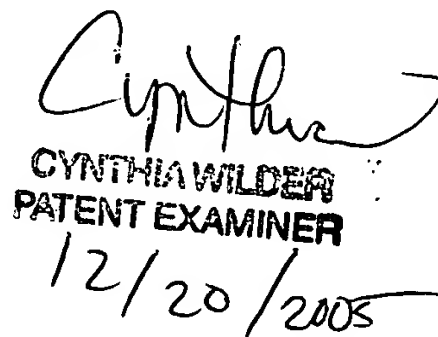 Cynthia
CYNTHIA WILDER
PATENT EXAMINER
12/20/2005